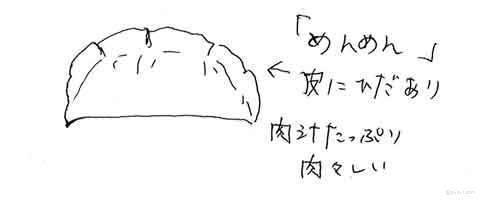 「めんめん」
← 皮にひだあり
肉汁たっぷり
肉々しい